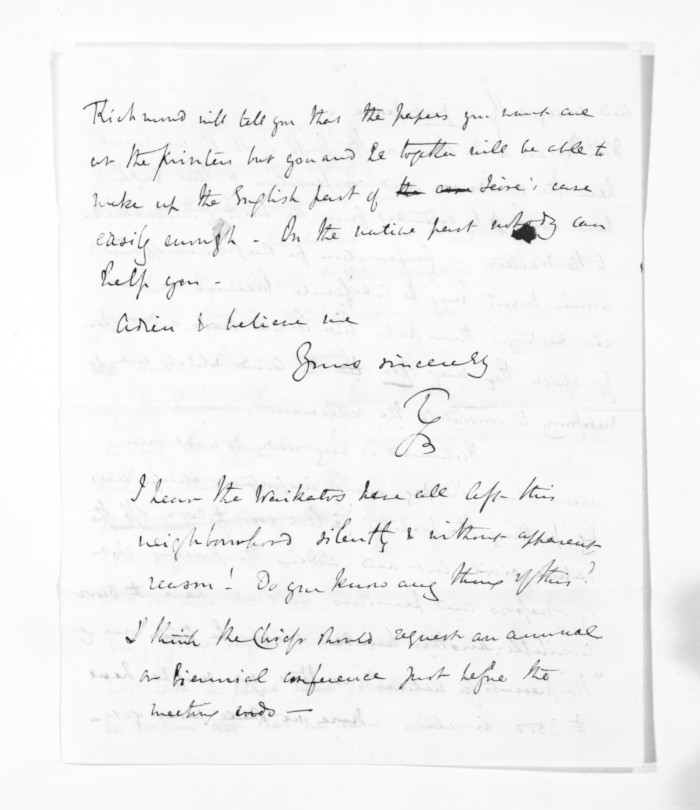 Richmond will tell you that the papers you want are
at the printers but you and he together will be able to
make up the English part of the case Seire's case
easily enough - On the native part nobody can
help you -
Adieu & believe me
Yours sincerely
TGB
I hear the Waikatos have all left this
neighbourhood silently & without apparent
reason! Do you know any thing of this?
I think the Chiefs should request an annual
or Biennial conference just before the
meeting ends -